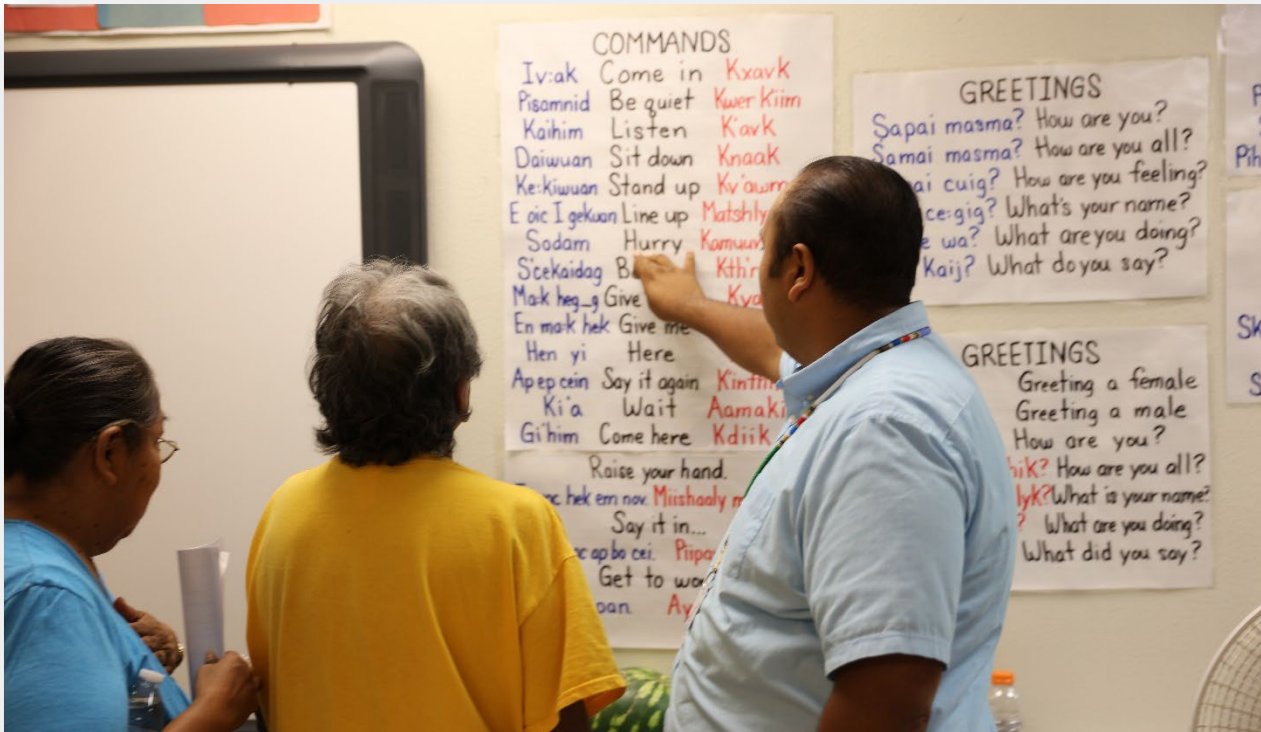 COMMANDS
Iv:ak Come in Kxavk
Pisamnid Be quiet Kwer Kiim
Kaihim Listen K'avk
Daiwuan Sit down Knaak
Ke:kiwuan Stand up Kv'awm
E oic I gekuan Line up
Sodam Hurry
S'cekaidag
Ma:k heg_g Give
En ma:k hek Give me
Hen yi Here
Ap ep cein Say it again
Ki'a Wait
Gi'him Come here Kdiik
Raise your hand.
hek em nov. Miishaaly
Say it in...
ap bo cei.
Get to
GREETINGS
Sapai masma? How are you?
Samai masma? How are you all?
cuig? How are you feeling?
What's your name?
wa? What are you doing?
Kaij? What do you say?
GREETINGS
Greeting a female
Greeting a male
How are you?
How are you all?
What is your name?
What are you doing?
What did you say?